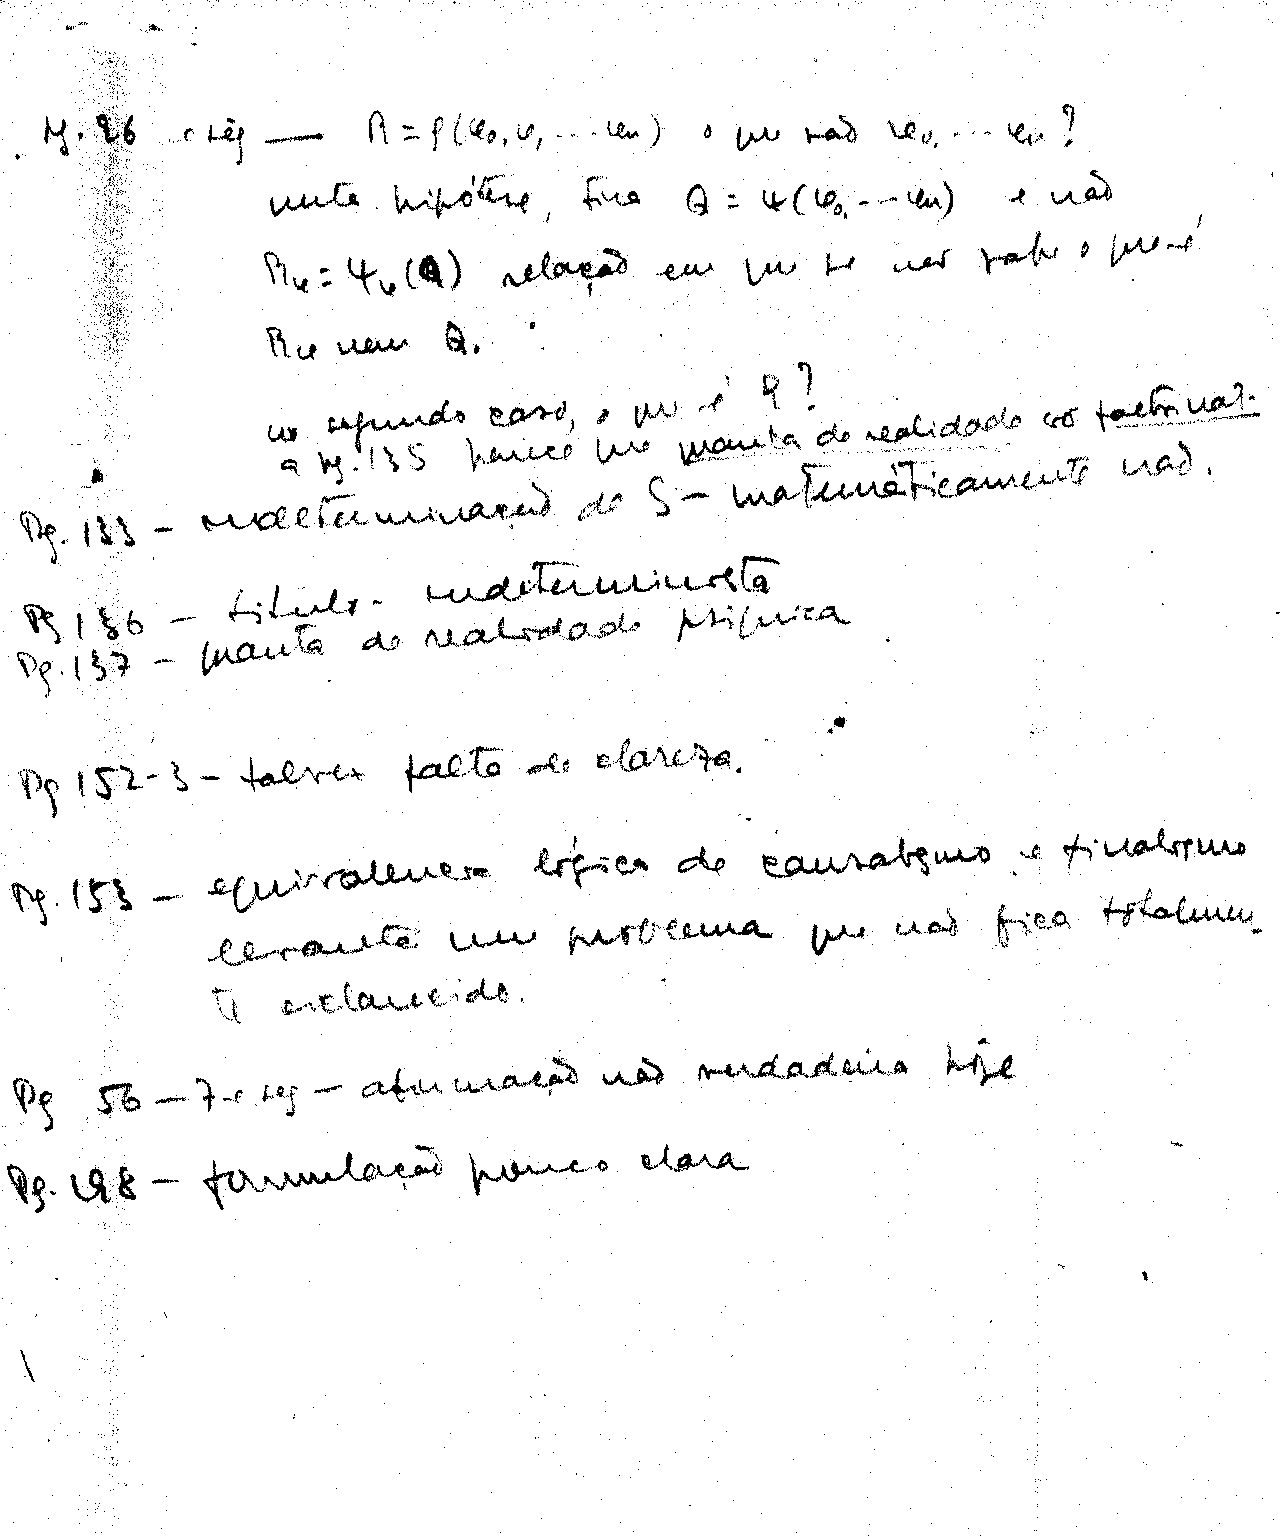 Pg. 26 e seg — R = φ(φ₀, φ₁, ... φn) o que são φ₀, ... φn?
nesta hipótese, fica Q = ψ(φ₀, ... φn) e não
Rφ = ψφ(Q) relação em que se não sabe o que é
Rφ nem Q.
no segundo caso, o que é φ?
a pg. 135 parece que quanta de realidade só factorizaç.
Pg. 133 — indeterminação de S — matemáticamente não.
Pg 136 — título - indeterminista
Pg. 137 — quanta de realidade psíquica
Pg 152-3 — talvez falta de clareza.
Pg. 153 — equivalencia lógica de causalismo e finalismo
levanta um problema que não fica totalmen-
te esclarecido.
Pg 56 — 7 e seg — afirmação não verdadeira hoje
Pg. 198 — formulação pouco clara